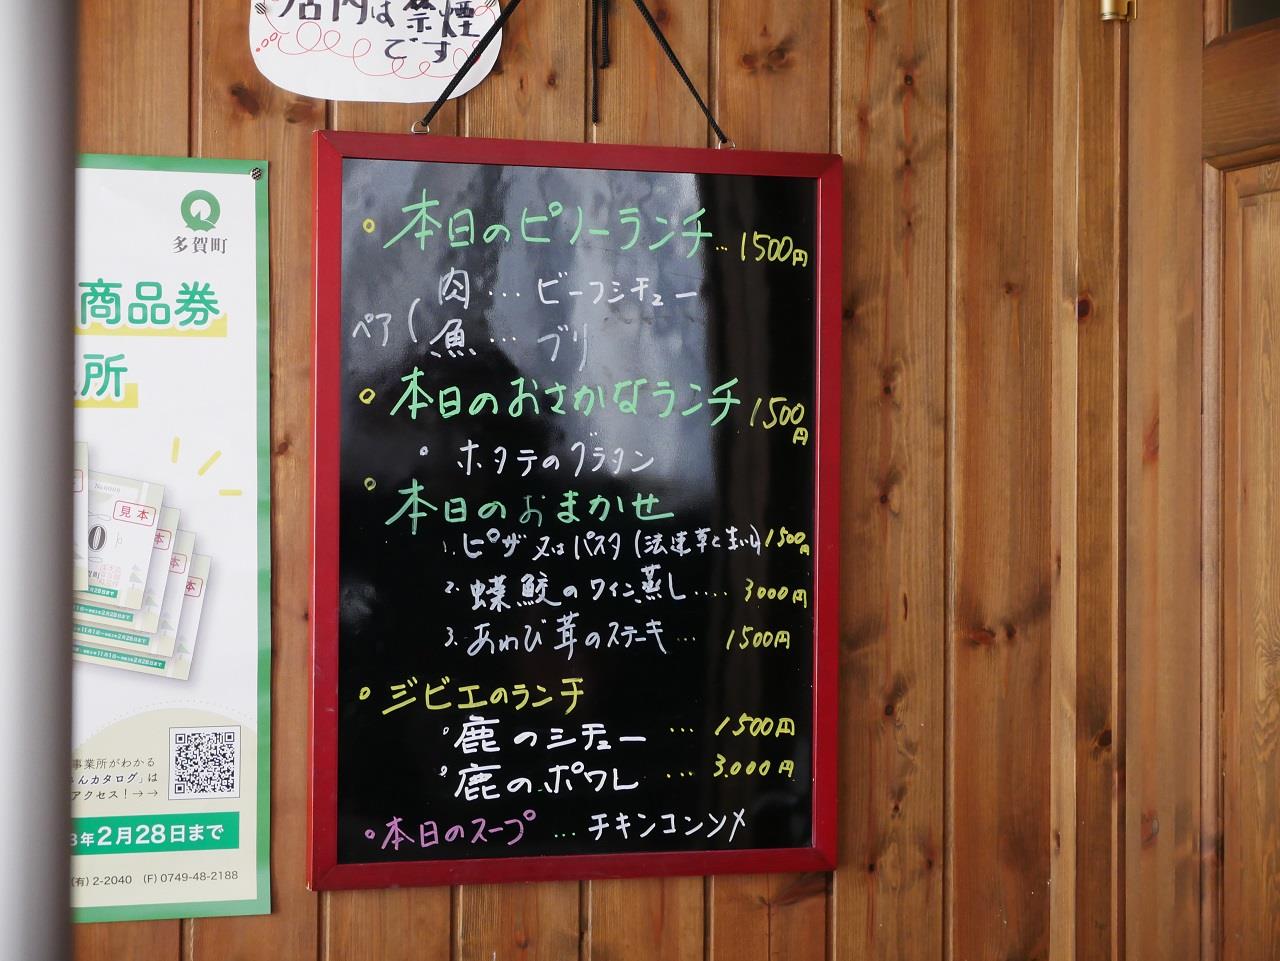 店内は禁煙
です
多賀町
商品券
所
見本
事業所がわかる
さんカタログ」は
アクセス!→→
3年2月28日まで
(有)2-2040 (F)0749-48-2188
本日のピノーランチ…1500円
ペア(
肉…ビーフシチュー
魚…ブリ
本日のおさかなランチ 1500円
ホタテのグラタン
本日のおまかせ
1.ピザ又はパスタ(法蓮草と 1500円
2.蝶鮫のワイン蒸し‥‥3000円
3.あわび茸のステーキ…1500円
ジビエのランチ
鹿のシチュー…1500円
鹿のポワレ…3.000円
本日のスープ…チキンコンソメ